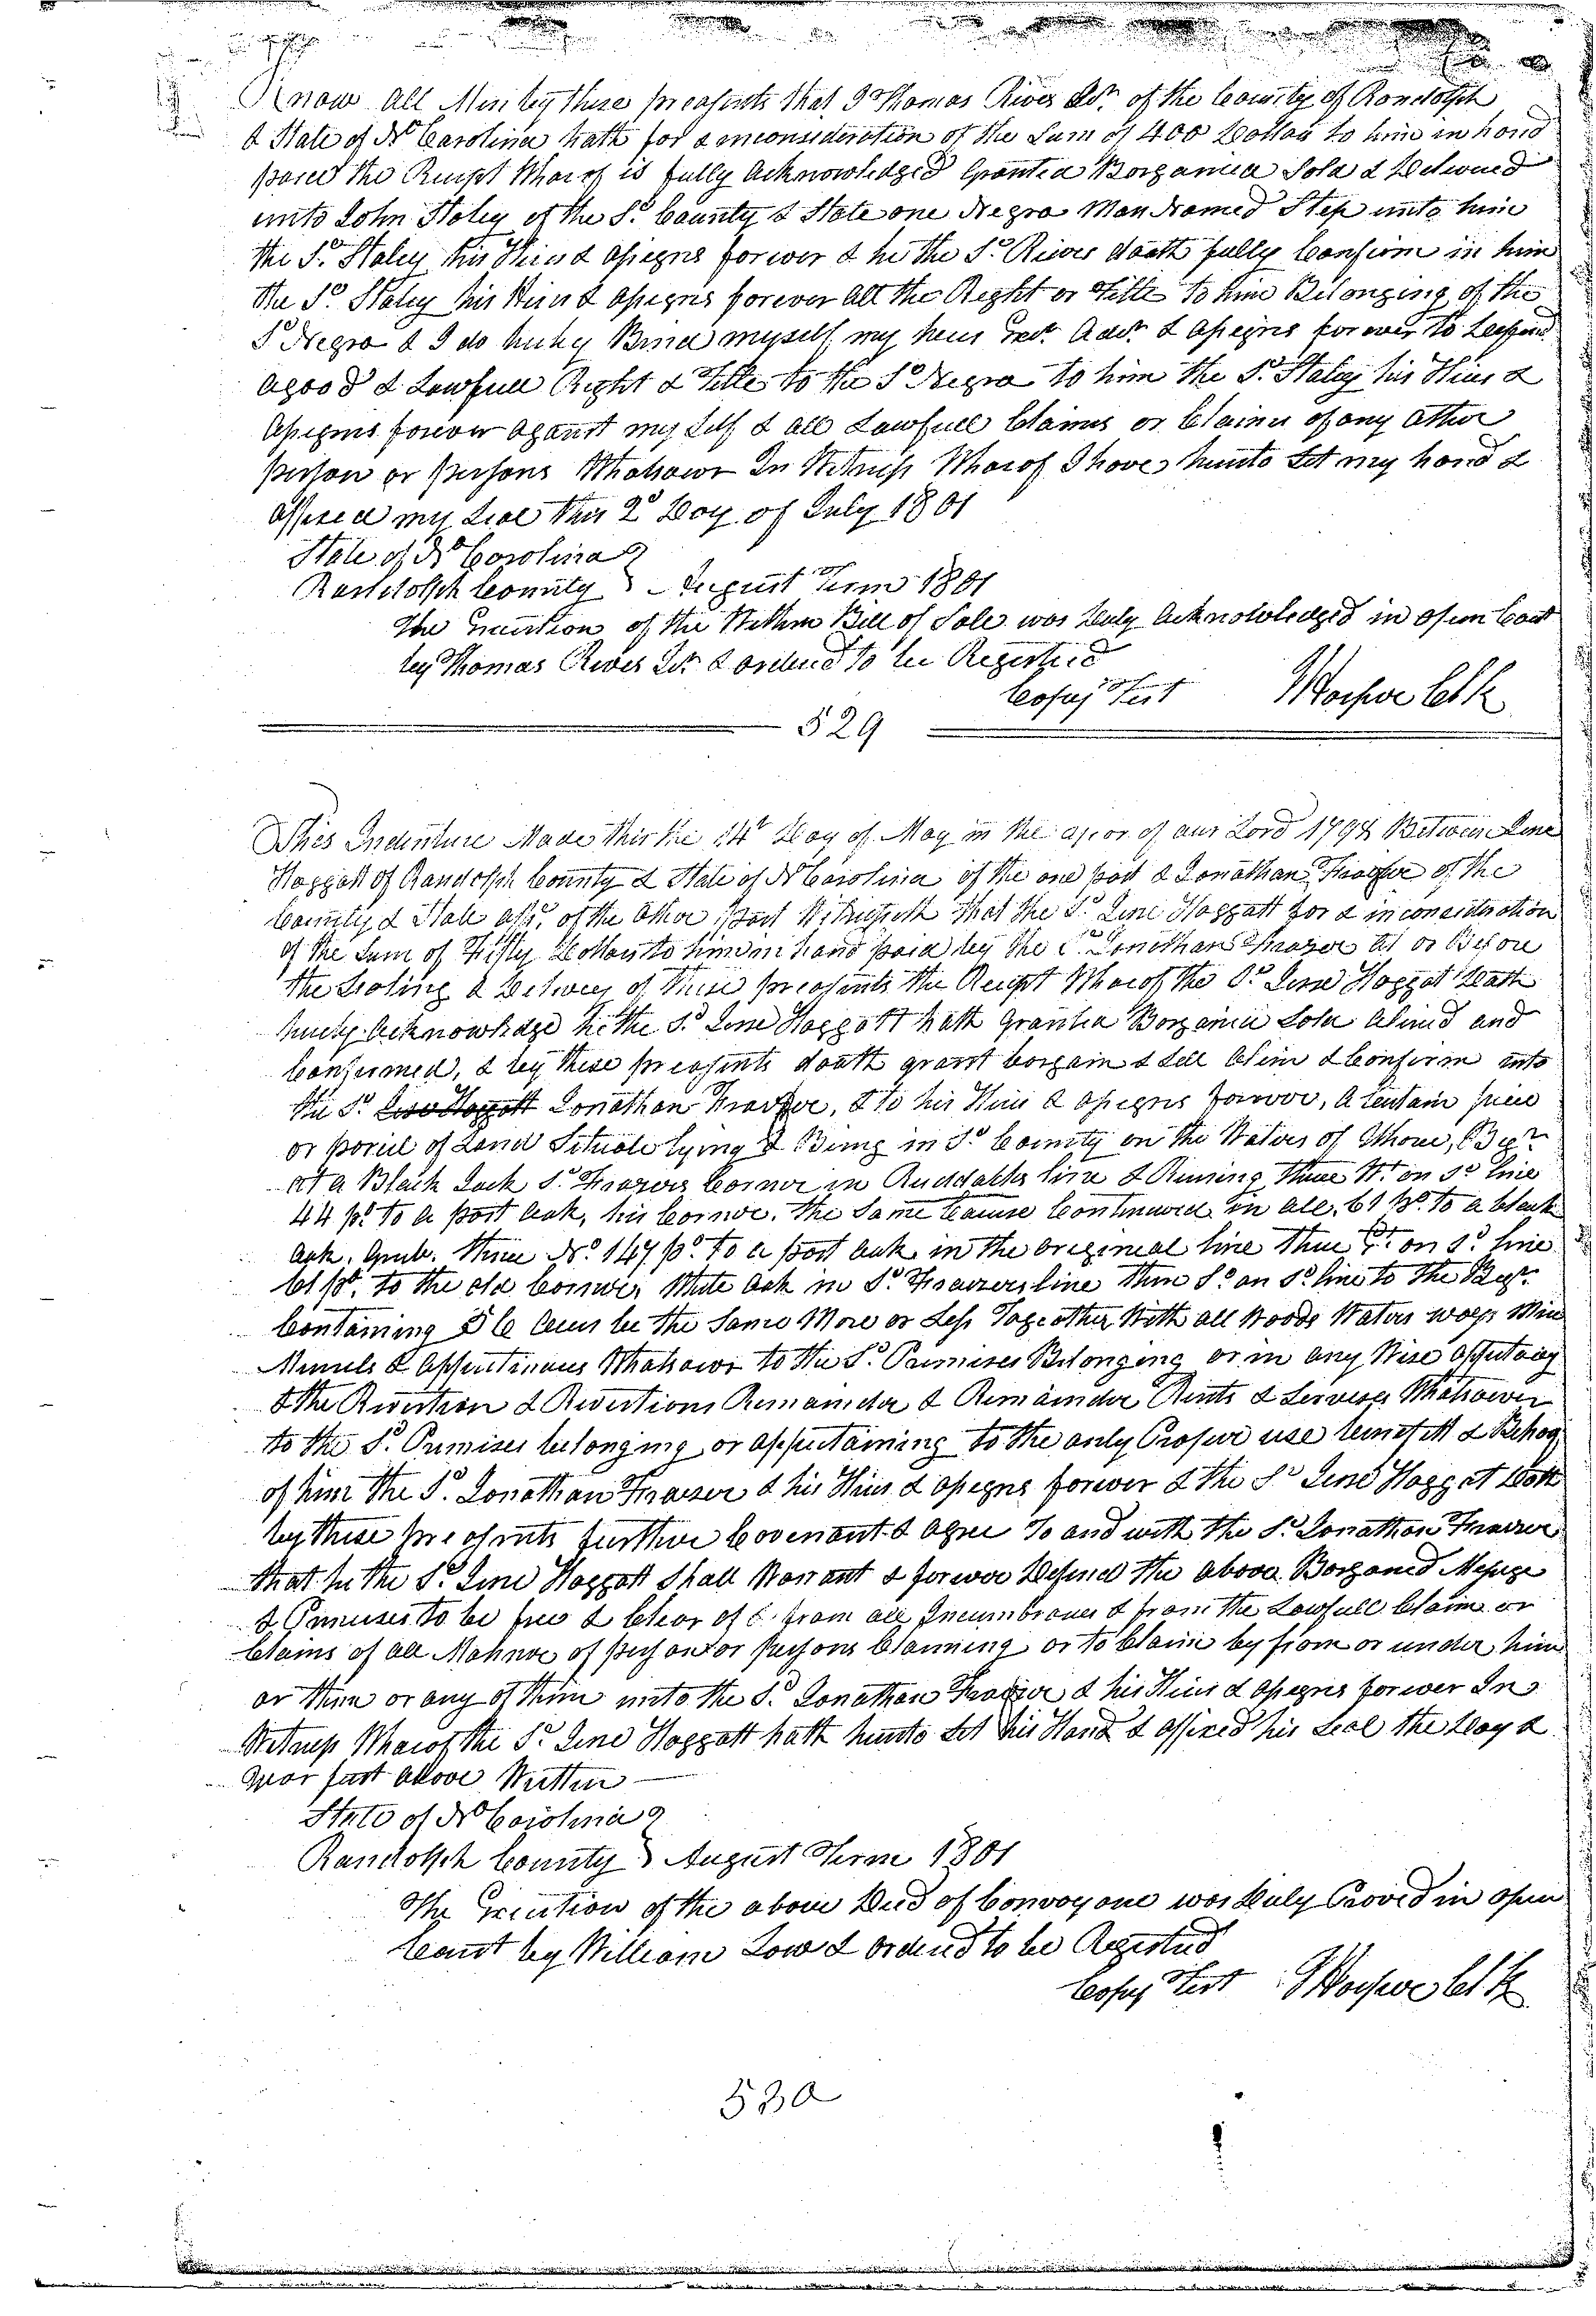 Know All Men by these preasents that I Thomas Rives Sr. of the County of Randolph
& State of No Carolina hath for & inconsideration of the Sum of 400 Dollars to him in hand
paied the Receipt Whareof is fully Acknowledged Granted Borganied Sold & Delivered
unto John Staley of the Sd. County & State one Negro Man Named Step unto him
the Sd. Staley his Heirs & Assigns forever & he the Sd. Rives doath fully Confirm in him
the Sd. Staley his Heirs & Assigns forever all the Right or Title to him Belonging of the
Sd Negro & I do heirby Bind myself my heirs Exr. Admr. & Assigns forever to Defend
agood & Lawfull Right & Title to the Sd Negro to him the Sd. Staley his Heirs &
Assigns forever against my Self & all Lawfull Claims or Claimer of any Other
person or persons Whatsoever In Witness Whareof I have heunto Set my hand &
affixed my Seal this 2d Day of July 1801
State of No Carolina
Randolph County August Term 1801
The Execution of the Within Bill of Sale was Duly Acknowledged in open Court
by Thomas Rives Sr. & ordered to be Registred
Copy Test Harper Clk
529
This Indenture Made this the 14t Day of May in the year of our Lord 1794 Between Jene
Hoggatt of Randolph County & State of No Carolina of the one part & Jonathan Frazer of the
County & State afsd. of the Other part Witnesseth that the Sd. Jene Hoggatt for & in consideration
of the Sum of Fifty Dollars to him in hand paid by the Sd. Jonathan Frazer at or Before
the Sealing & Delivery of these preasents the Receipt Whareof the Sd. Jene Hoggat Doath
hereby Acknowledge he the Sd. Jene Hoggatt hath Granted Borganied Sold Aliend and
Confirmed, & by these preasents doath grant borgain & Sell Alien & Confirm unto
the Sd. Jene Hoggott Jonathan Frazer, & to his Heirs & Assigns forever, A Certain peice
or parcel of Land Situate lying & Being in Sd. County on the Waters of Uhwarie, Begn.
at a Black Jack Sd. Frazers Corner in Rudduks line & Runing thence Wt. on Sd line
44 po. to a post Oak, his Corner, the Same Course Continued in all, 61 po. to a black
Oak, Grub, thence No. 147 po. to a post Oak in the origineal line thence Et. on Sd. line
61 po. to the old Corner, White Oak in Sd. Frazers line thence So. on Sd. line to the Begn.
Containing 56 Acres be the Same More or Less Togeather With all Woods Waters ways Mines
Minnels & Appurtinances Whatsoever to the Sd. Primises Belonging or in any Wise Appertaing
& the Revertion & Revertions Remainder & Remainder Rents & Services Whatsoever
to the Sd. Primises belonging or appertaining to the only Proper use benefitt & Behoof
of him the Sd. Jonathan Frazer & his Heirs & Assigns forever & the Sd Jene Hoggat Doth
by these preasents further Covenant & Agree to and with the Sd. Jonathan Frazer
that he the Sd. Jene Hoggatt Shall Warrant & forever Defend the above Borgained Messuge
& Primises to be free & Clear of & from all Incumbrances & from the Lawfull Claim or
Claims of all Mahner of person or persons Claiming or to Claim by from or under him
or them or any of them unto the Sd. Jonathan Frazier & his Heirs & Assigns forever In
Witness Whareof the Sd. Jene Hoggatt hath heunto Set his Hand & affixed his Seal the Day &
year first above Written
State of No Carolina
Randolph County August Term 1801
The Execution of the above Deed of Convoyance was Duly Proved in open
Court by William Low & ordered to be Registred
Copy Test Harper Clk
530